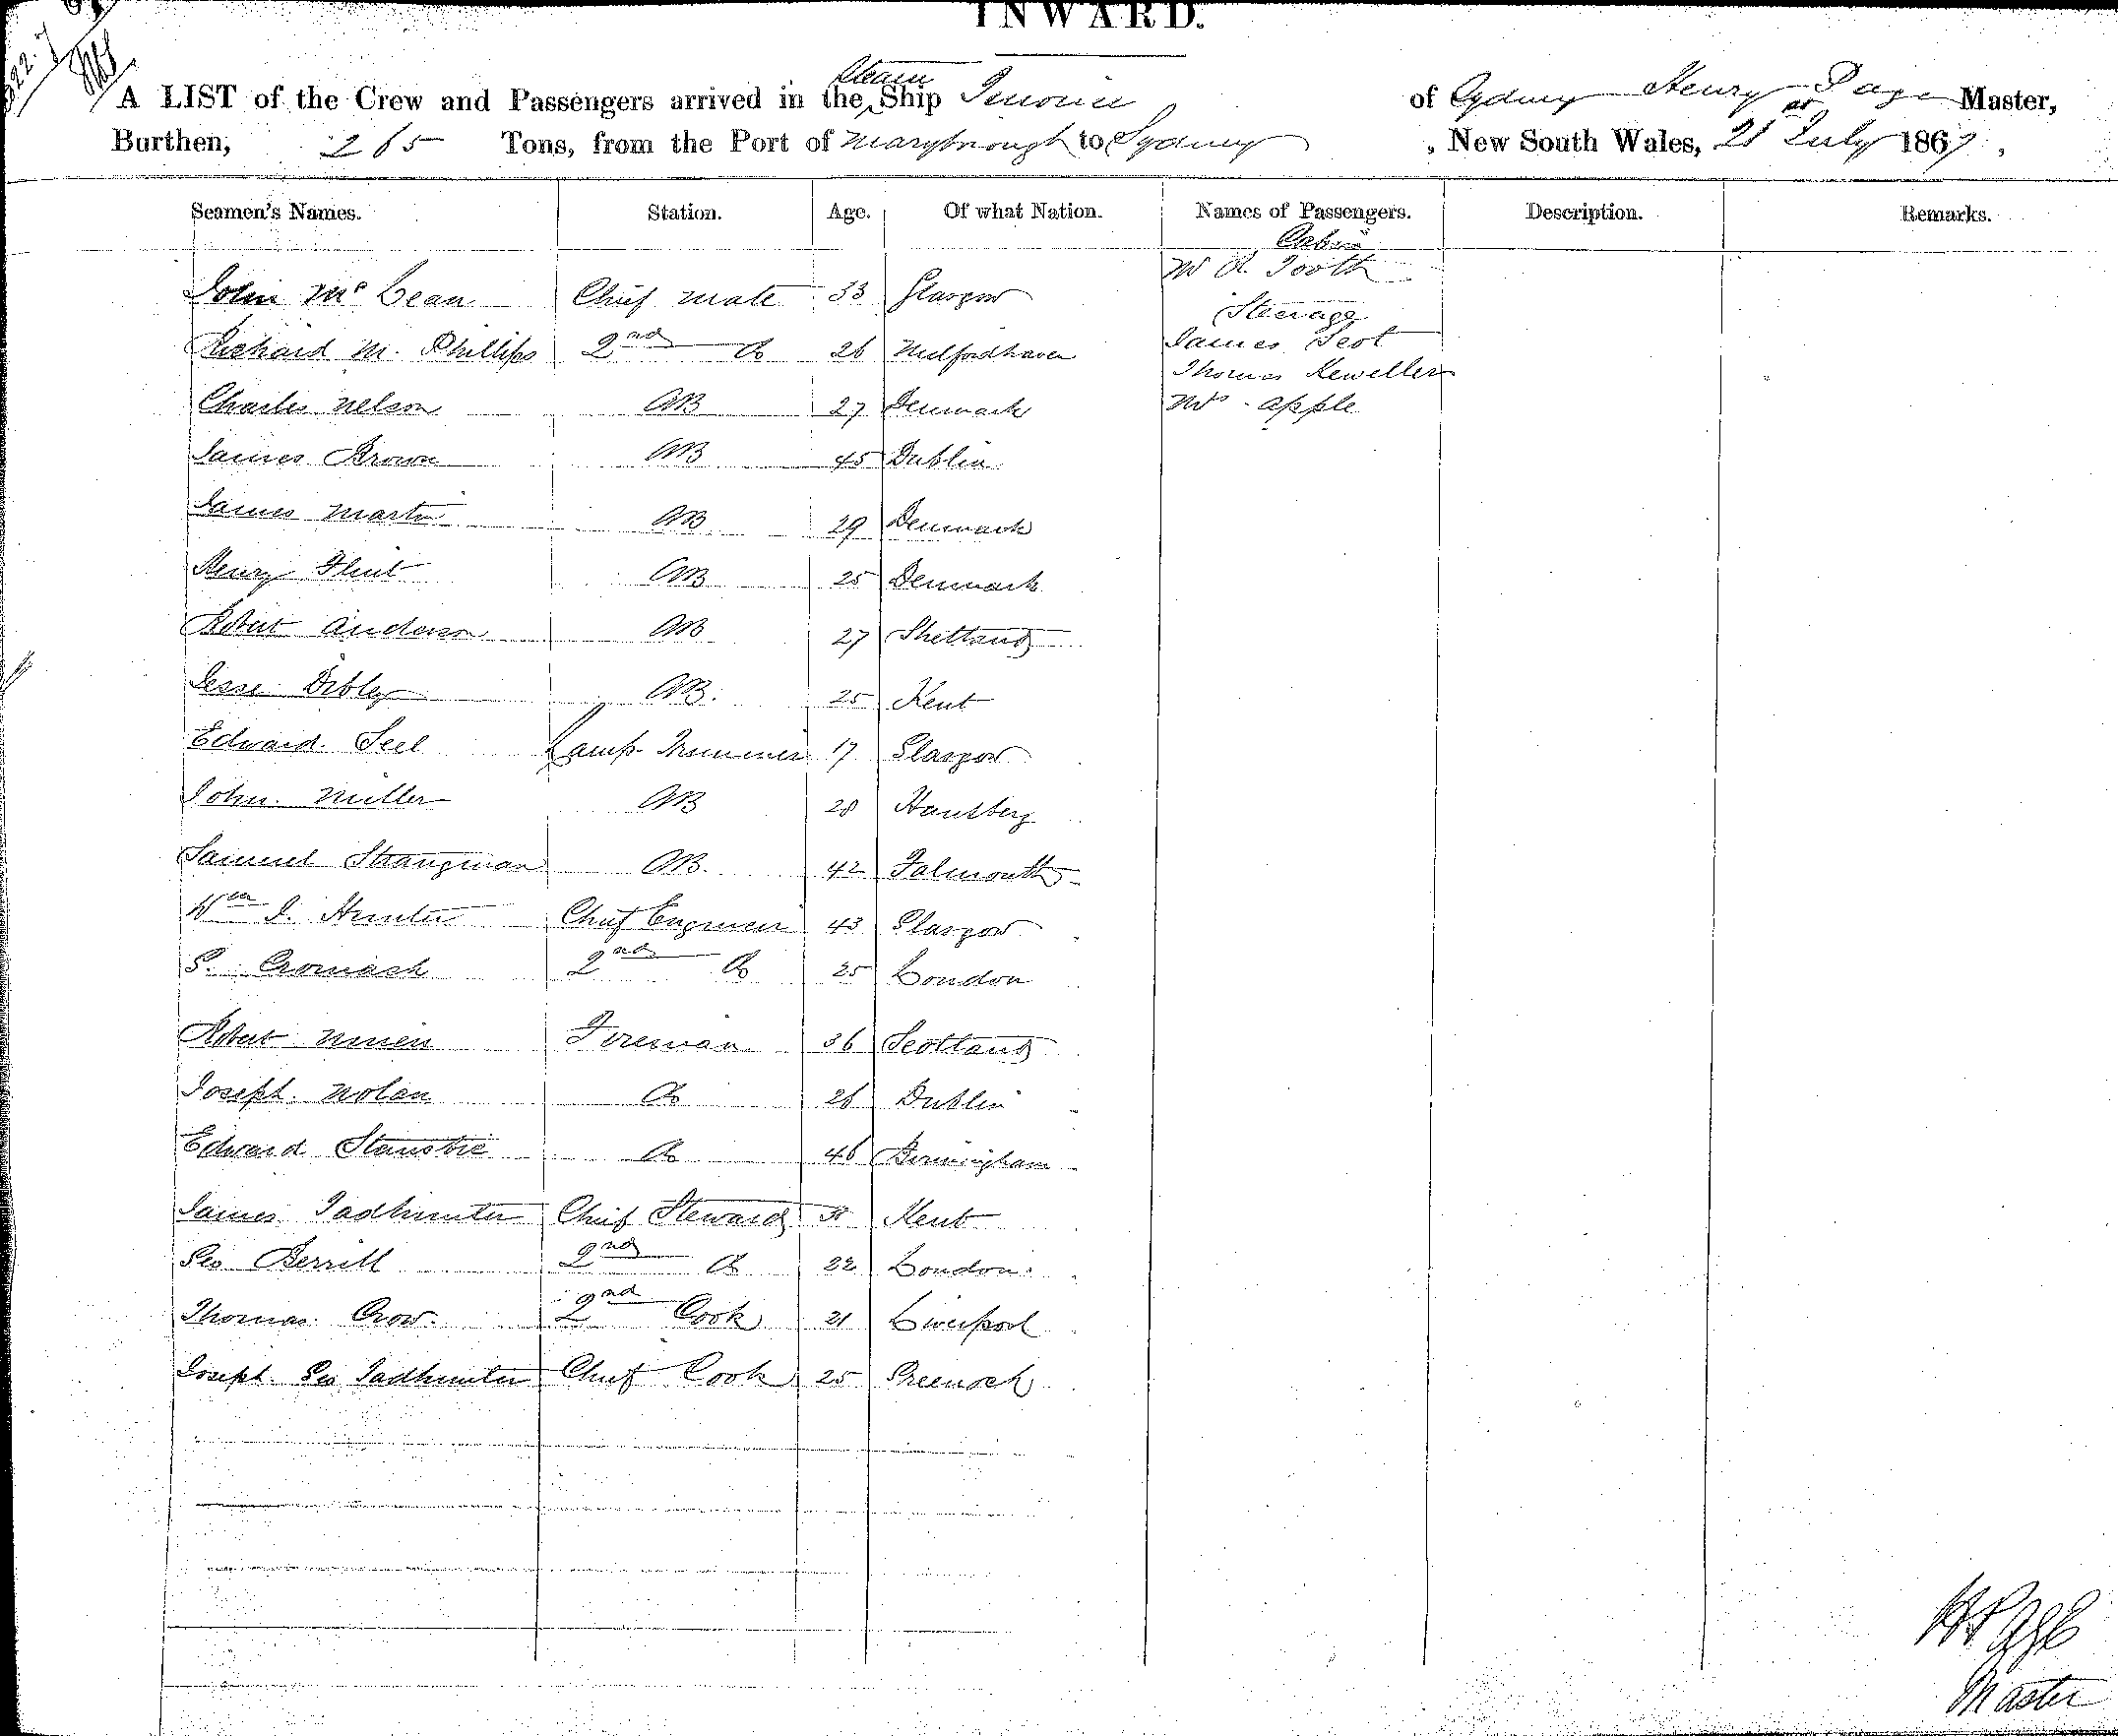 INWARD.
A LIST of the Crew and Passengers arrived in the Steam Ship of Sydney Henry Page Master,
Burthen, 265 Tons, from the Port of Maryborough to Sydney , New South Wales, 21st July 1867,
Seamen's Names. Station. Age. Of what Nation. Names of Passengers. Description. Remarks.
Cabin
Mr R. Tooth
John Mc Lean Chief Mate 33 Glasgow
Steerage
Richard M. Phillips 2nd Do 26 Milfordhaven James Scot
Thomas Keweller
Charles Nelson AB 27 Denmark Mrs Apple
James Brown AB 45 Dublin
James Martin AB 29 Denmark
Henry Flint AB 25 Denmark
Robert Anderson AB 27 Shetland
Jesse Dibley AB. 25 Kent
Edward Seel Lamp Trimmer 17 Glasgow
John Miller AB 28
Samuel Strangman AB. 42 Falmouth
Wm J. Hunter Chief Engineer 43 Glasgow
2nd Do 25 London
Robert Fireman 36 Scotland
Joseph Nolan Do 26 Dublin
Edward Do 46 Birmingham
James Tadhunter Chief Steward Kent
Geo Berrill 2nd Do 22 London
Thomas Crow. 2nd Cook 21 Liverpool
Joseph Geo Tadhunter Chief Cook 25 Greenock
H Page
Master